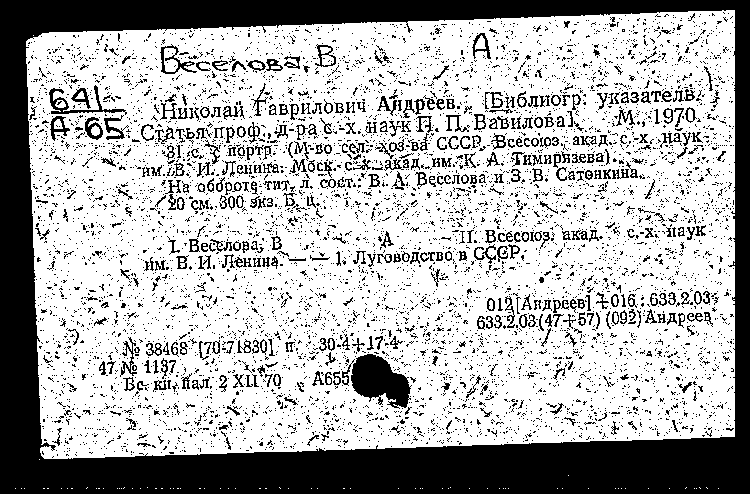 Веселова, В А
641
А-65
Николай Гаврилович Андреев. [Библиогр. указатель.
Статья проф., д-ра с.-х. наук П. П. Вавилова]. М., 1970.
31 с. портр. (М-во сел. хоз-ва СССР. Всесоюз. акад. с.-х. наук
им. В. И. Ленина. Моск. с.-х. акад. им. К. А. Тимирязева).
На обороте тит. л. сост.: В. А. Веселова и З. В. Сатонкина.
20 см. 300 экз. Б. ц.
I. Веселова, В А II. Всесоюз. акад. с.-х. наук
им. В. И. Ленина. — — 1. Луговодство в СССР.
012[Андреев]+016 : 633.2.03
633.2.03(47+57) (092) Андреев
№ 38468 [70-71830] п 30-4+17-4
47 № 1137
Вс. кн. пал. 2 XII 70 А655